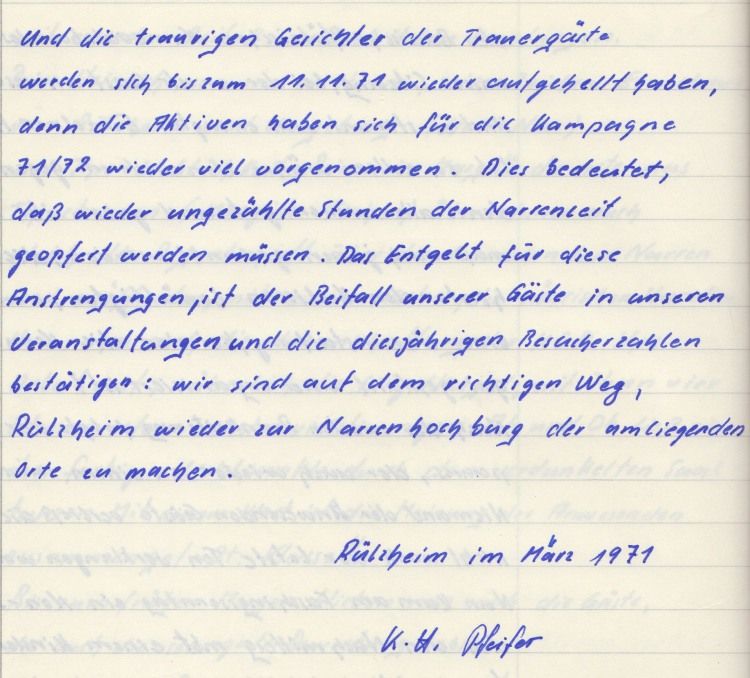 Und die traurigen Gesichter der Trauergäste
werden sich bis zum 11.11.71 wieder aufgehellt haben,
denn die Aktiven haben sich für die Kampagne
71/72 wieder viel vorgenommen. Dies bedeutet,
daß wieder ungezählte Stunden der Narrenzeit
geopfert werden müssen. Das Entgelt für diese
Anstrengungen, ist der Beifall unserer Gäste in unseren
Veranstaltungen und die diesjährigen Besucherzahlen
bestätigen: wir sind auf dem richtigen Weg,
Rülzheim wieder zur Narrenhochburg der umliegenden
Orte zu machen.
Rülzheim im März 1971
K. H. Pfeifer